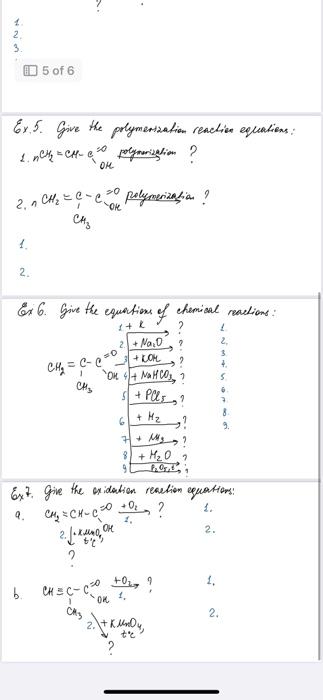 ?
1.
2.
3.
5 of 6
Ex. 5. Give the polymerization reaction equations:
1. nCH₂ = CH - C =O OH polymerization ?
2. n CH₂ = C - C =O OH polymerization ?
CH₃
1.
2.
Ex 6. Give the equations of chemical reactions:
1 + K ? 1.
2 + Na₂O ? 2.
CH₂ = C - C =O OH 3 + KOH ? 3
CH₃ 4 + NaHCO₃ ? 4.
5 + PCl₅ ? 5.
6 + H₂ ? 6.
7 + NH₃ ? 7.
8 + H₂O ? 8.
9 P₂O₅, t ? 9.
Ex 7. Give the oxidation reaction equations:
a. CH₂ = CH - C =O OH +O₂ 1. ? 1.
2. + KMnO₄ t°C 2.
?
b. CH ≡ C - C =O OH +O₂ 1. ? 1.
CH₃ 2. + KMnO₄, t°C 2.
?